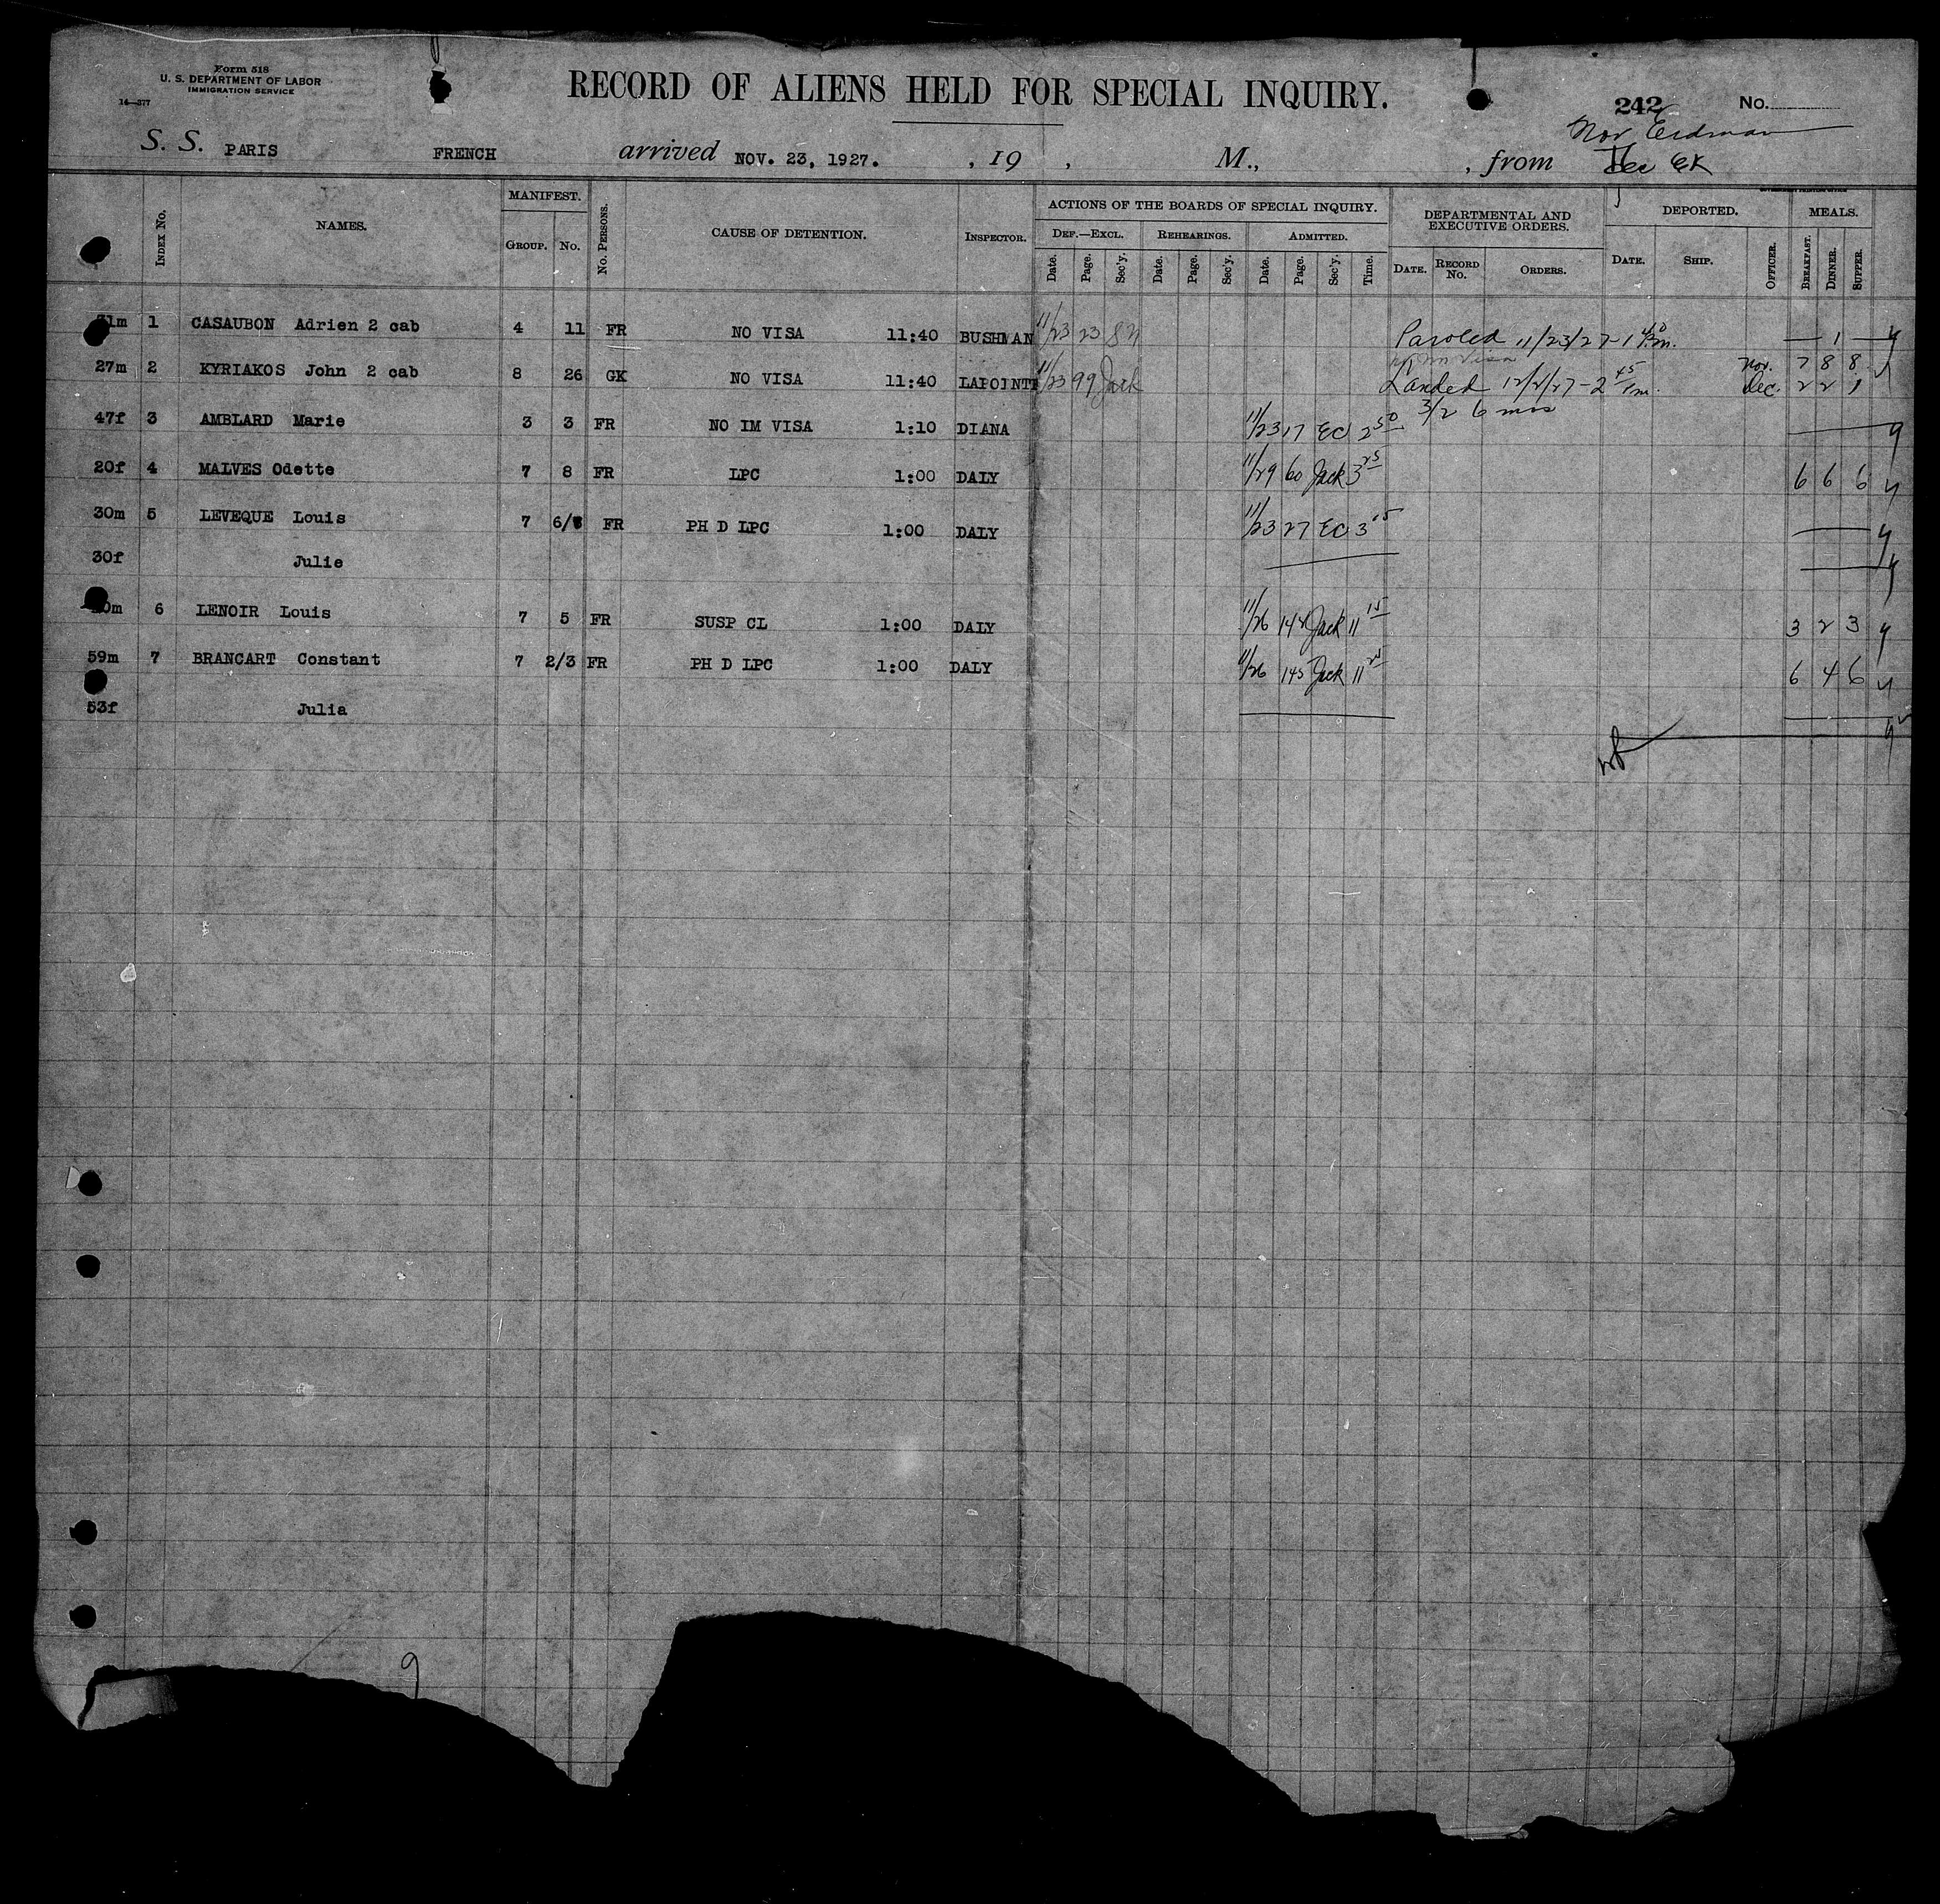 Form 518
U. S. DEPARTMENT OF LABOR
IMMIGRATION SERVICE
14—377
RECORD OF ALIENS HELD FOR SPECIAL INQUIRY.
242 No.
Nov Erdman
S. S. PARIS FRENCH arrived NOV. 23, 1927. , 19 , M., , from Dec EK
INDEX No. NAMES. MANIFEST. GROUP. No. No. PERSONS. CAUSE OF DETENTION. INSPECTOR. ACTIONS OF THE BOARDS OF SPECIAL INQUIRY. DEF.—EXCL. Date. Page. Sec'y. REHEARINGS. Date. Page. Sec'y. ADMITTED. Date. Page. Sec'y. Time. DEPARTMENTAL AND EXECUTIVE ORDERS. DATE. RECORD No. ORDERS. DEPORTED. DATE. SHIP. OFFICER. MEALS. BREAKFAST. DINNER. SUPPER.
1m 1 CASAUBON Adrien 2 cab 4 11 FR NO VISA 11:40 BUSHMAN 11/23 23 Paroled 11/23/27 - 1 40 P.m. — 1 —
27m 2 KYRIAKOS John 2 cab 8 26 GK NO VISA 11:40 LAPOINTE 11/23 99 Jack Landed 12/2/27 - 2 45 Pm. Nov. 7 8 8
Dec. 2 2 1
3/2 6 mos
47f 3 AMBLARD Marie 3 3 FR NO IM VISA 1:10 DIANA 11/23 17 EC 2 50
20f 4 MALVES Odette 7 8 FR LPC 1:00 DALY 11/29 60 Jack 3 25 6 6 6
30m 5 LEVEQUE Louis 7 6/ FR PH D LPC 1:00 DALY 11/23 27 EC 3 15
30f Julie
0m 6 LENOIR Louis 7 5 FR SUSP CL 1:00 DALY 11/26 144 Jack 11 15 3 2 3
59m 7 BRANCART Constant 7 2/3 FR PH D LPC 1:00 DALY 11/26 145 Jack 11 6 4 6
53f Julia
9